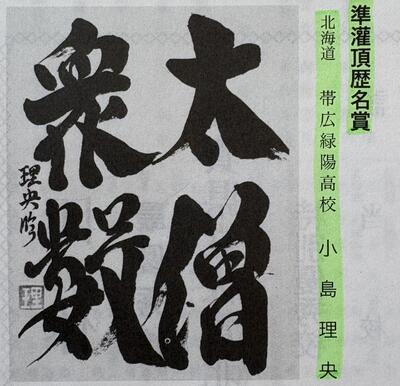 準灌頂歴名賞
北海道 帯広緑陽高校 小島理央
太僧
衆數
理央臨
理